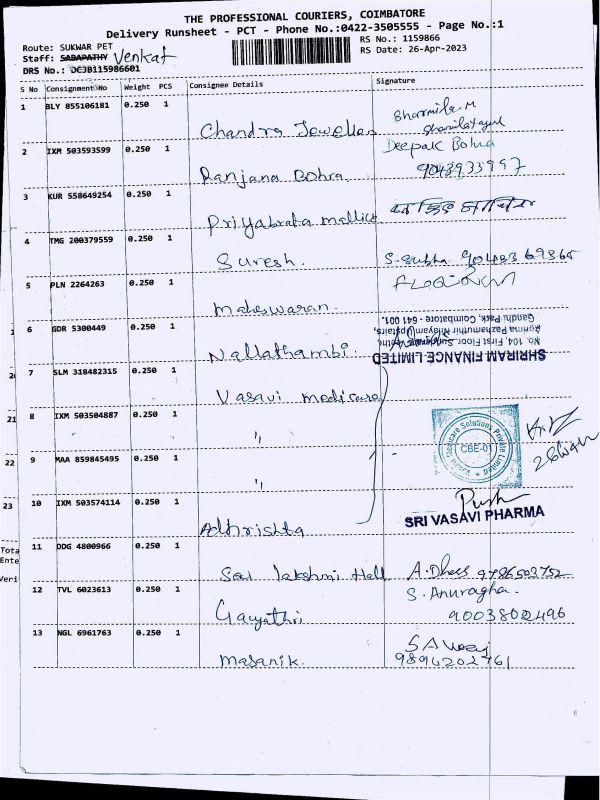 THE PROFESSIONAL COURIERS, COIMBATORE
Delivery Runsheet - PCT - Phone No.:0422-3505555 - Page No.:1
Route: SUKWAR PET
RS No.: 1159866
Staff: SABAPATHY Venkat
RS Date: 26-Apr-2023
DRS No.: DCJB115986601
S No Consignment No Weight PCS Consignee Details Signature
1 BLY 855106181 0.250 1 Chandra Jewellers Sharmila.M
2 IXM 503593599 0.250 1 Ranjana Bohra Deepak Bohra
3 KUR 558649254 0.250 1 Priyabrata mallick
4 TMG 200379559 0.250 1 Suresh. S. Subha
5 PLN 2264263 0.250 1 Maheswaran
6 GDR 5300449 0.250 1 Nallathambi
SHRIRAM FINANCE LIMITED
No. 104, First Floor,
Pazhamuthir Nilayam Upstairs,
Gandhi Park, Coimbatore - 641 001.
7 SLM 318482315 0.250 1 Vasavi medicare
8 IXM 503504887 0.250 1 "
CBE-01
9 MAA 859845495 0.250 1 "
10 IXM 503574114 0.250 1 Adhrishta
SRI VASAVI PHARMA
11 DDG 4800966 0.250 1 Sai lakshmi Hall 9786503752
12 TVL 6023613 0.250 1 Gayathri S. Anuragha.
9003802496
13 NGL 6961763 0.250 1 Masanik.
9894202761
20
21
22
23
Tota
Ente
Veri